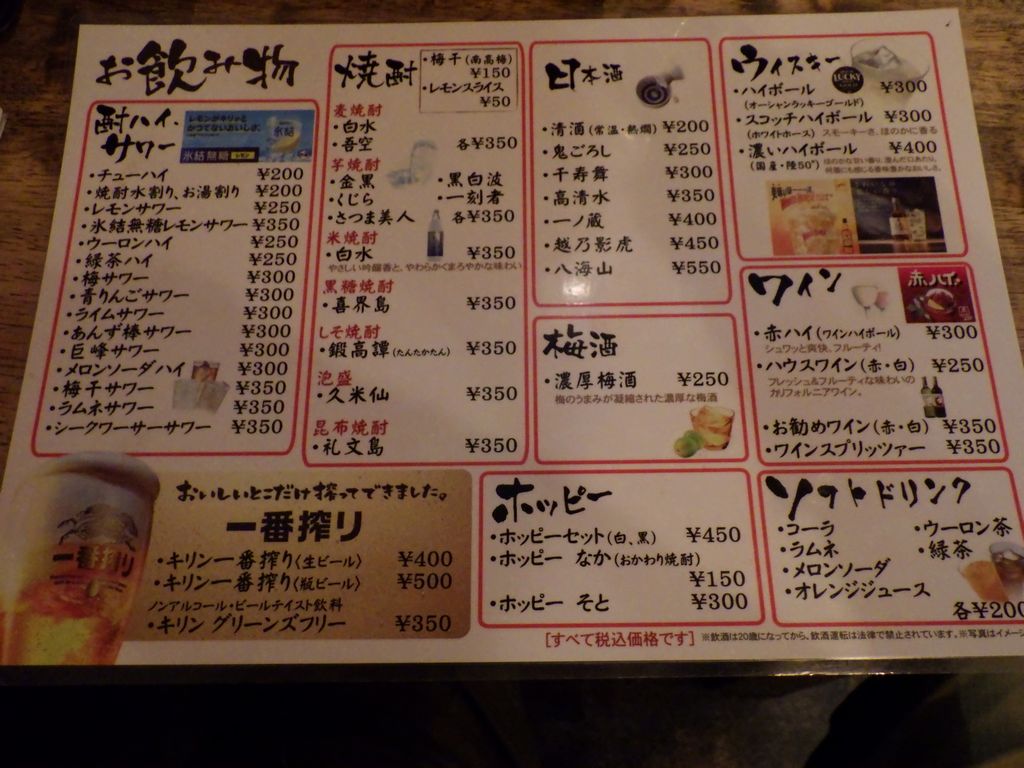 お飲み物
酎ハイ・
サワー
レモンがキリッと
かつてないおいしさ。
氷結
氷結無糖 レモン
・チューハイ ¥200
・焼酎水割り、お湯割り ¥200
・レモンサワー ¥250
・氷結無糖レモンサワー ¥350
・ウーロンハイ ¥250
・緑茶ハイ ¥250
・梅サワー ¥300
・青りんごサワー ¥300
・ライムサワー ¥300
・あんず棒サワー ¥300
・巨峰サワー ¥300
・メロンソーダハイ ¥300
・梅干サワー ¥350
・ラムネサワー ¥350
・シークワーサーサワー ¥350
焼酎
・梅干(南高梅)
¥150
・レモンスライス
¥50
麦焼酎
・白水
・吾空 各¥350
芋焼酎
・金黒 ・黒白波
・くじら ・一刻者
・さつま美人 各¥350
米焼酎
・白水 ¥350
やさしい吟醸香と、やわらかくまろやかな味わい
黒糖焼酎
・喜界島 ¥350
しそ焼酎
・鍛高譚(たんたかたん) ¥350
泡盛
・久米仙 ¥350
昆布焼酎
・礼文島 ¥350
日本酒
・清酒(常温・熱燗) ¥200
・鬼ごろし ¥250
・千寿舞 ¥300
・高清水 ¥350
・一ノ蔵 ¥400
・越乃影虎 ¥450
・八海山 ¥550
梅酒
・濃厚梅酒 ¥250
梅のうまみが凝縮された濃厚な梅酒
ウィスキー
LUCKY
・ハイボール ¥300
(オーシャンラッキーゴールド)
・スコッチハイボール ¥300
(ホワイトホース) スモーキーさ、ほのかに香る
・濃いハイボール ¥400
(国産・陸50°)
ワイン
赤ハイ
・赤ハイ(ワインハイボール) ¥300
シュワッと爽快、フルーティ!
・ハウスワイン(赤・白) ¥250
フレッシュ&フルーティな味わいの
カリフォルニアワイン。
・お勧めワイン(赤・白) ¥350
・ワインスプリッツァー ¥350
一番搾り
おいしいとこだけ搾ってできました。
一番搾り
・キリン一番搾り〈生ビール〉 ¥400
・キリン一番搾り〈瓶ビール〉 ¥500
ノンアルコール・ビールテイスト飲料
・キリン グリーンズフリー ¥350
ホッピー
・ホッピーセット(白、黒) ¥450
・ホッピー なか(おかわり焼酎)
¥150
・ホッピー そと ¥300
ソフトドリンク
・コーラ ・ウーロン茶
・ラムネ ・緑茶
・メロンソーダ
・オレンジジュース
各¥200
[すべて税込価格です] ※飲酒は20歳になってから、飲酒運転は法律で禁止されています。※写真はイメージ